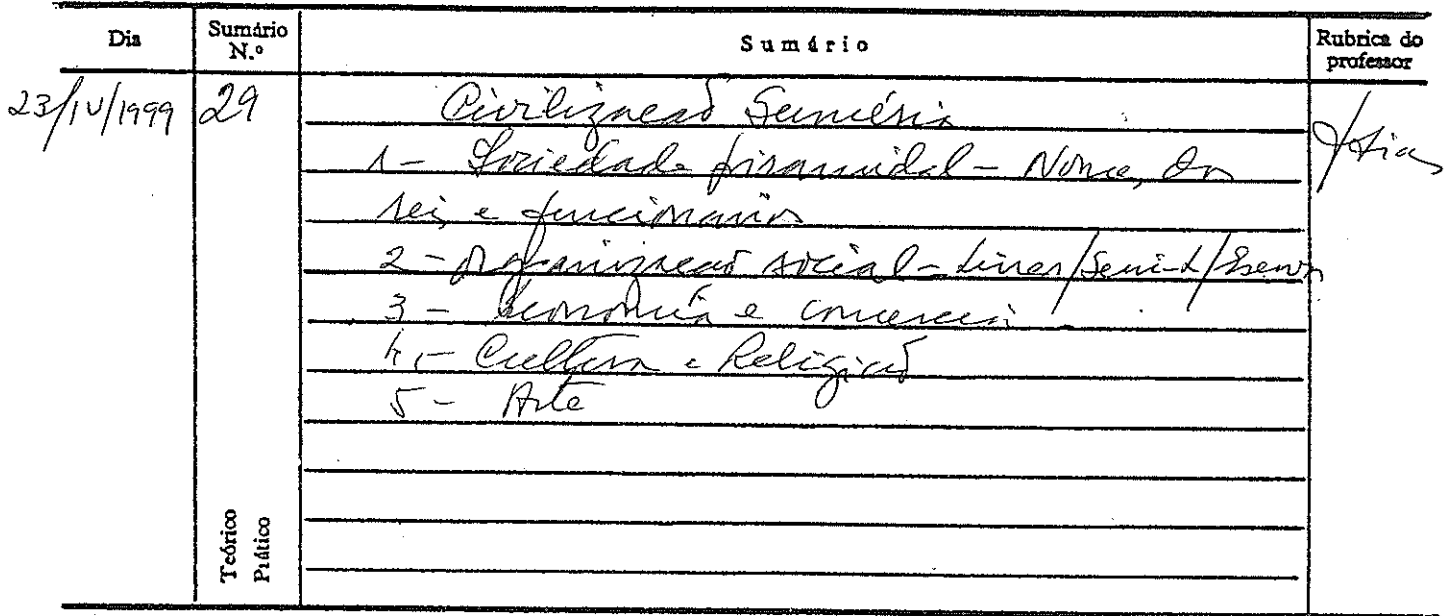 Dia Sumário N.º Sumário Rubrica do professor
23/IV/1999 29 Civilização Suméria
1 - Sociedade piramidal - Nome, do
rei e funcionarios
2 - Organização social - Livres/Semi-L/Escrvs
3 - Economia e comercio
4 - Cultura e Religião
5 - Arte
Teórico
Prático